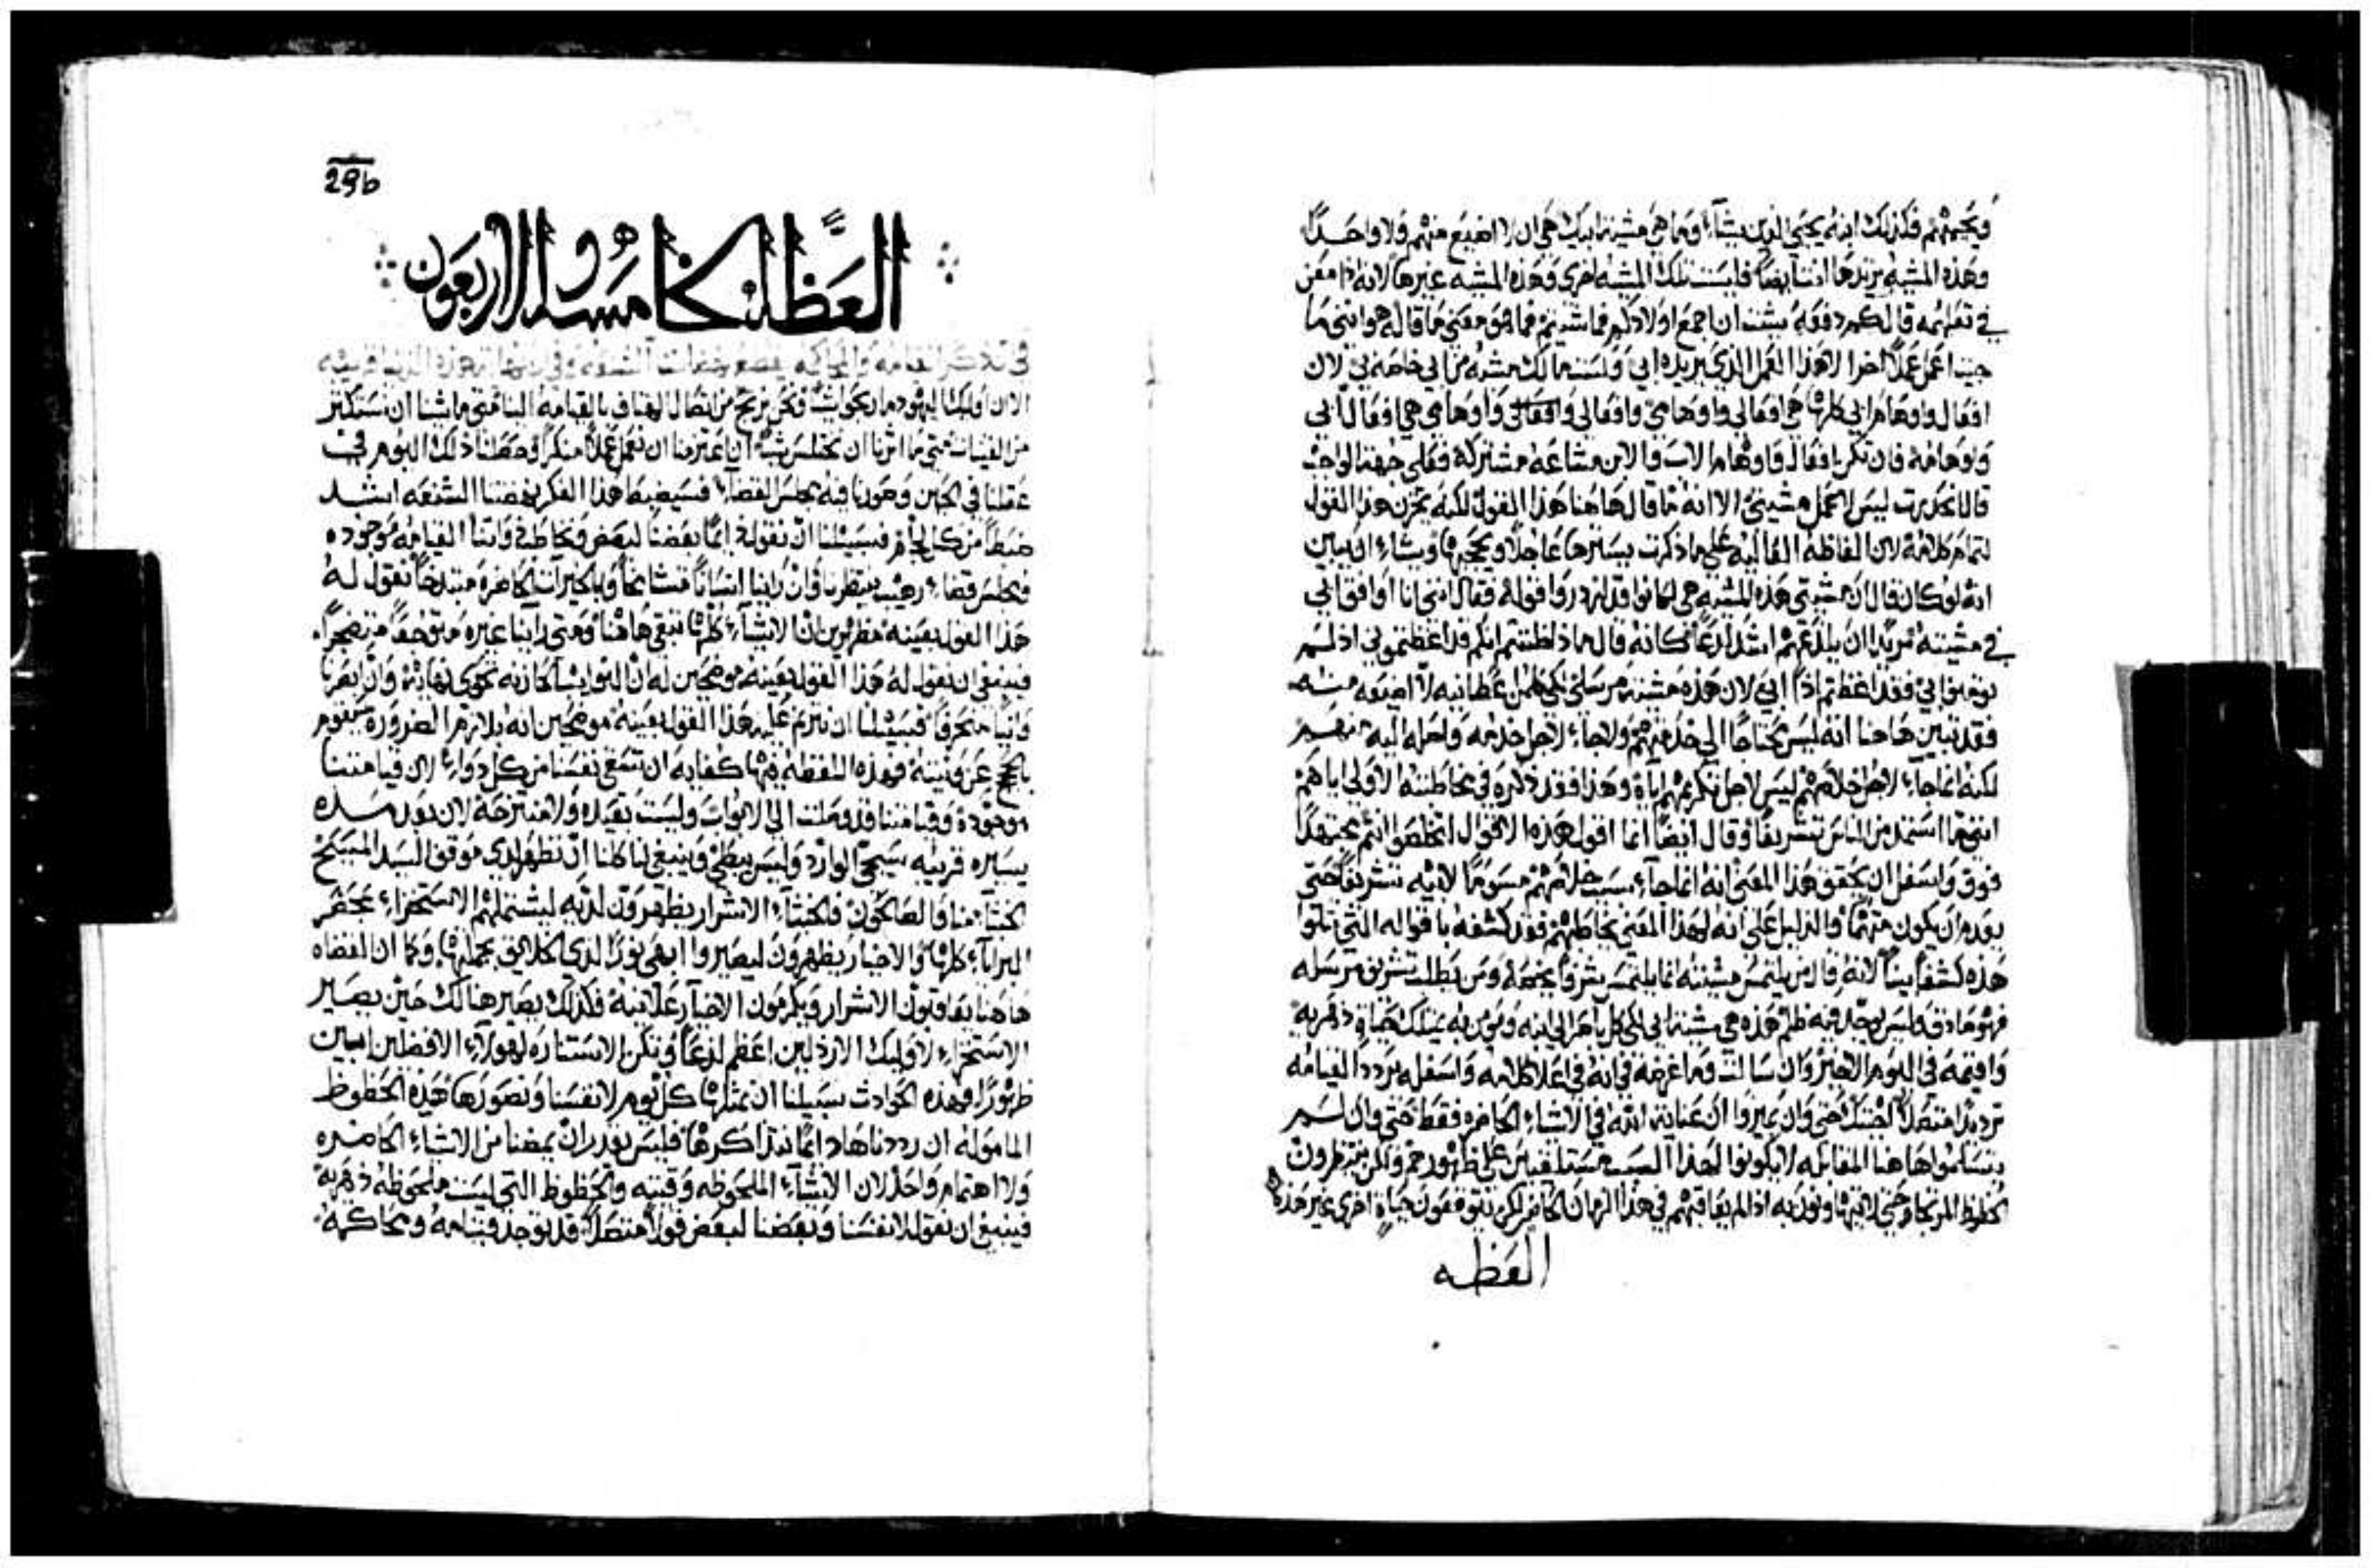 ويحييهم فكذلك ابنه يحيي الذين يشآء وما هي مشية ابيك هي ان لا اضيع منهم ولا واحداً
وهذه المشيه يريدها انت ايضاً فليست تلك المشيه اخرى وهذه المشيه غيرها لانه اذا امعن
في تعليمه قال لكم دفعه شئت ان اجمع اولادكم فما شئتم فما هو معنى ما قاله هو انني ما
جيت اعمل عملاً اخرا لا هذا العمل الذي يريده ابي ولست مالك مشيه من ابي خاصه بي لان
افعال واوهام ابي كلها هي افعالي واوهامي وافعالي واوهامي هي افعال ابي
واوهامه فان تكن افعال واوهام الاب والابن مشاعه مشتركه فعلى جهة الواجب
قال انحدرت ليس لاعمل مشيتي الا انه ما قال هاهنا هذا القول لكنه يخزن هذا القول
لتمام كلامه لان الفاظه العاليه على ما ذكرت يسترها عاجلاً ويحجبها ويشآء ان يبين
انه لو كان قال ان مشيتي هذه المشيه هي لكانوا قد ازدروا قوله فقال انني انا اوافق ابي
في مشيته مريداً ان يلذعهم اشد لذعاً كانه قال ماذا ظننتم انكم قد اغظتموني اذ لم
تومنوا بي فقد اغظتم اذاً ابي لان هذه مشية مرسلي لكي كلمن اعطانيه لا اضيعه منه
فقد تبين هاهنا انه ليس محتاجاً الى خدمتهم ولا جاء لاجل خدمه واصله اليه منهم
لكنه انما جاء لاجل خلاصهم ليس لاجل تكريمهم اياه وهذا فقد ذكره في مخاطبته الاولى اياهم
انني ما استمد من الناس تشريفاً وقال ايضاً انما اقول هذه الاقوال لتخلصوا انتم مجتهداً
فوق واسفل ان يحقق هذا المعنى انه انما جاء بسبب خلاصهم مسوماً لابيه تشريفاً حتى
يعدم ان يكون متهماً والدليل على انه لهذا المعنى يخاطبهم فقد كشفه باقواله التي تتلوا
هذه كشفاً بيناً لانه قال من يلتمس مشيته انما يلتمس شرفاً يخصه ومن يطلب تشريف مرسله
فهو صادق وليس يوجد فيه ظلم هذه هي مشية ابي لكي كل من يبصر الى ابنه ويومن به يمتلك حياة دهريه
واقيمه في اليوم الاخير وان سالت وما غرضه في انه في اعلا كلامه واسفله يردد القيامه
ترديداً متصلاً اجبتك حتى وان يميزوا ان عناية الله في الاشياء الحاضره فقط حتى وان لم
يتسلموا هاهنا المقابله لا يكونوا لهذا السبب مستلقين على ظهورهم ولكن منتظرون
حظوظ المرتجا وحتى لا يتهاونون به اذ لم يعاقبهم في هذا الزمان الحاضر لكن يتوقعون حياةٍ اخرى غير هذه
العظه
29b
العظه الخامسه والاربعون
في تذكر القيامه والمحاكمه
الان اوليك اليهود ما ربحوا شياً فنحن نربح من اتصال الهتاف بالقيامه الينا فمتى ما شئنا ان نستكثر
من القنيات متى ما اثرنا ان نختلس شياً ان اعتزمنا ان نعمل عملاً منكراً وضعنا ذلك اليوم في
عقلنا في الحين وصورنا فيه مجلس القضآء فسيضبط هذا الفكر نهضتنا الشنعه اشد
ضبطاً من كل لجام فسبيلنا ان نقوله دايماً بعضنا لبعض ونخاطب ذواتنا القيامه موجوده
ومجلس قضاء رهيب ينتظرنا وان راينا انساناً متشامخاً وبالخيرات الحاضره مبتدخاً نقول له
هذا القول بعينه مظهرين ان الاشيآء كلها تبقى هاهنا ومتى راينا غيره متوجعاً متضجراً
فينبغي ان نقول له هذا القول بعينه موضحين له ان النوايب المحازنه تحوي نهايةً وان ابصرنا
وانياً منحرفاً فسبيلنا ان نترنم عليه هذا القول بعينه موضحين انه بلازم الضروره سيقوم
بالحجج عن ونيته فهذه اللفظه فيها كفايه ان تشفي نفسنا من كل دوآء لان قيامتنا
موجوده وقيامتنا قد وصلت الى الابواب وليست بعيده ولا منتزحه لان بعد مده
يسيره قريبه سيجي الوارد وليس يبطئ وينبغي لنا كلنا ان نظهر لدى موقف السيد المسيح
الخبثآء منا والصالحون فالخبثآء الاشرار يظهرون لديه ليشتملهم الاستخزاء بمحضر
البرايآء كلها والاخيار يظهرون ليصيروا ابهى نوراً لدى الخلايق بجملتها وكما ان القضاه
هاهنا يعاقبون الاشرار ويكرمون الاخيار علانيةً فكذلك يصير هنالك حين يصير
الاستخزاء لاوليك الارذلين اعظم لذعاً وتكن الاستناره لهولاء الافضلين ابين
ظهوراً فهذه الحوادث سبيلنا ان نمثلها كل يوم لانفسنا ونصورها هذه الحظوظ
المامولة ان رددناها دايماً بتذاكرها فليس يقدر ان يمضنا من الاشيآء الحاضره
ولا اهتمام واحد لان الاشيآء الملحوظه وقتيه والحظوظ التي ليست ملحوظه دهريه
فينبغي ان نقول لانفسنا وبعضنا لبعض قولاً متصلاً قد توجد قيامه ومحاكمه